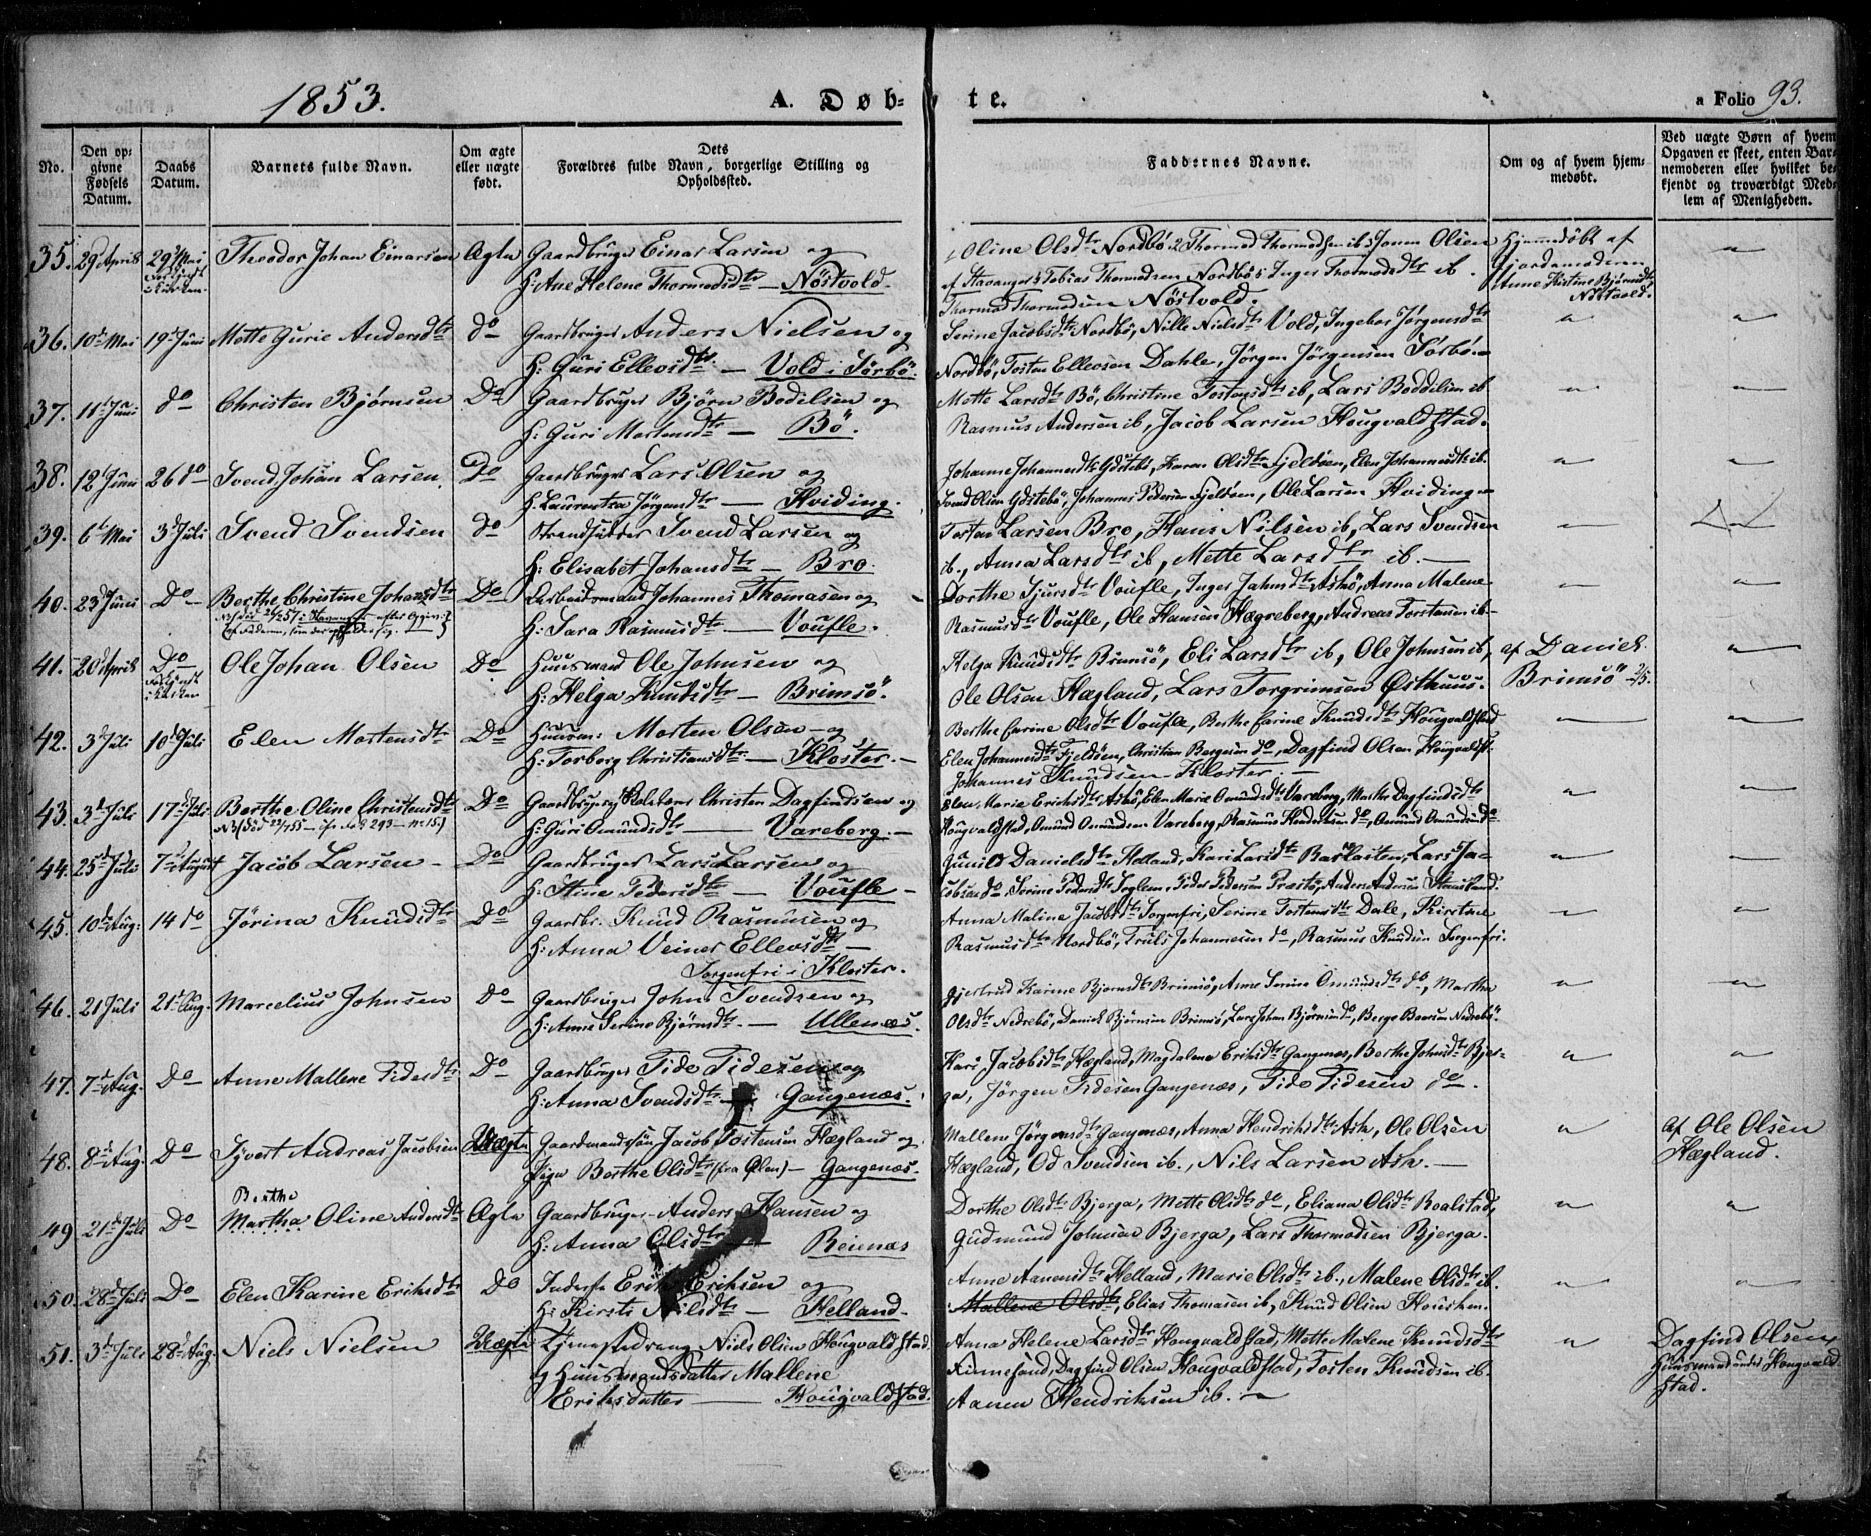 1853.
A. Døb-
te.
a Folio 93.
No.
Den op-
givne
Fødsels
Datum.
Daabs
Datum.
Barnets fulde Navn.
Om ægte
eller uægte
født.
Dets
Forældres fulde Navn, borgerlige Stilling og
Opholdssted.
Faddernes Navne.
Om og af hvem hjem-
medøbt.
Ved uægte Børn af hvem
Opgaven er skeet, enten Bar-
nemoderen eller hvilket be-
kjendt og troværdigt Med-
lem af Menigheden.
35. 29 April 29 Mai Theodor Johan Einarsen Ægte Gaardbruger Einar Larsen og
H: Ane Helene Thormodsdtr — Nöstvold.
Oline Olsdtr Nordbö, 2 Thormod Thormodsen ib, 3 Jonas Olsen
af Stavanger 4 Tobias Thormodsen Nordbö 5 Inger Thormodsdtr ib.
Thormod Thormodsen Nöstvold.
Hjemmedöbt af
Gjordemoderen
Anne Kistine Bjørnsdtr
Nöstvold
36. 10 Mai 19 Juni Mette Gurie Andersdtr do Gaardbruger Anders Nielsen og
H: Guri Ellevsdtr — Vold i Sörbö.
Serine Jacobsdtr Nordbö, Nille Nielsdtr Vold, Ingebor Jørgensdtr
Nordbö, Tosten Ellevsen Dahle, Jørgen Jørgensen Sörbö
37. 11 Juni do Christen Bjørnsen Do Gaardbruger Bjørn Bodelsen og
H: Guri Mortensdtr — Bö.
Mette Larsdtr Bö, Christine Tostensdtr ib, Lars Boddelsen ib
Rasmus Andersen ib, Jacob Larsen Hougvaldstad.
38. 12 Juni 26 do Svend Johan Larsen. Do Gaardbruger Lars Olsen og
H: Laurentza Jørgensdtr — Hviding.
Johanne Johannesdtr Gdsteb., Karen Olsdtr Fjeldöen, Elen Johannesdtr ib.
Svend Olsen Gdstebö, Johannes Pedersen Fjeldöen, Ole Larsen Hviding
39. 6 Mai 3 Juli Svend Svendsen do Strandsidder Svend Larsen og
H: Elisabet Johansdtr — Bro.
Tosten Larsen Bro, Hans Nilsen ib, Lars Svendsen
ib., Anna Larsdtr ib, Mette Larsdtr ib. —
40. 23 Juni Do Berthe Christine Johansdtr Do Arbeidsmand Johannes Thomasen og
H: Sara Rasmusdtr — Voufle.
Dorthe Sjursdtr Voufle, Inger Jahnsdtr Askö, Anna Malene
Rasmusdtr Voufle, Ole Hansen Hægreberg, Andreas Tostensen ib
41. 20 April Do Ole Johan Olsen Do Huusmand Ole Johnsen og
H: Helga Knudsdtr — Brimsö.
Helga Knudsdtr Brimsö, Eli Larsdtr ib, Ole Johnsen ib,
Ole Olsen Hægland, Lars Torgrimsen Østhuus.
af Daniel
Brimsö
42. 3 Juli 10 Juli Elen Mortensdtr Do Huusm: Morten Olsen og
H: Torborg Christiansdtr — Kloster. —
Berthe Carine Olsdtr Voufle, Berthe Carine Knudsdtr Hougvaldstad
Elen Johannesdtr Fjeldöen, Christian Bergesen do, Dagfind Olsen Hougvaldst.
Johannes Knudsen Kloster. —
43. 3 Juli 17 Juli Berthe Oline Christensdtr Do Gaardbruger Christen Dagfindsen og
H: Guri Omundsdtr — Vareberg. —
Elen Marie Eriksdtr Askö, Elen Marie Omundsdtr Vareberg, Marthe Dagfindsdtr
Hougvaldstad, Omund Omundsen Vareberg, Rasmus Hendriksen do, Omund Omundsen do
44. 25 Juli 7 August Jacob Larsen — Do Gaardbruger Lars Larsen og
H: Stine Pedersdtr — Voufle —
Gunild Danielsdtr Helland, Kari Larsdtr, Lars Ja-
cobsen do, Serine Pedersdtr, Peder Pedersen, Anders Andersen
45. 10 Aug: 14 do Jörina Knudsdtr Do Gaardbr. Knud Rasmusen og
H: Anna Veiner Ellevsdtr —
Sorgenfri i Kloster.
Anna Maline Jacobsdtr Sorgenfri, Serine Tostensdtr Dale, Kirstine
Rasmusdtr Nordbö, Truls Johannesen do, Rasmus Knudsen Sorgenfri.
46. 21 Juli 21 Aug. Marcelius Johnsen Do Gaardbruger John Svendsen og
H: Anne Serine Bjørnsdtr. — Ullenæs.
Gjertrud Karine Bjørnsdtr Brimsö, Anne Serine Omundsdtr do, Martha
Olsdtr Nedrebö, Daniel Bjørnsen Brimsö, Lars Johan Bjørnsen do, Berge Nedrebö.
47. 7 Aug. Do Anne Mallene Tidesdtr Do Gaardbruger Tide Tidesen og
H: Anna Svendsdtr — Gangenæs.
Kari Jacobsdtr Hægland, Magdalene Eriksdtr Gangenæs, Berthe Johnsdtr Bjer-
ga, Jørgen Tidesen Gangenæs, Tide Tidesen do.
48. 8 Aug. Do Sjvert Andreas Jacobsen Uægte Gaardmandssøn Jacob Tostensen Hægland og
Pige Berthe Olsdtr (fra Ølen) — Gangenæs.
Mallene Jørgensdtr Gangenæs, Anna Hendriksdtr Ask, Ole Olsen
Hægland, Od Svendsen ib., Nils Larsen Ask. —
af Ole Olsen
Hægland.
Berthe
49 21 Juli Do Martha Oline Andersdtr Ægte Gaardbruger Anders Hansen og
H: Anna Olsdtr Reienæs
Dorthe Olsdtr Bjerga, Mette Olsdtr do, Eliana Olsdtr Roalstad,
Gudmund Johnsen Bjerga, Lars Thormodsen Bjerga.
50. 28 Juli Do Elen Karine Eriksdtr Do Inderste Erik Eriksen og
H: Kirsti Nilsdtr — Helland.
Anne Aanensdtr Helland, Marie Olsdtr ib., Malene Olsdtr ib.
Mallene Olsdtr, Elias Thomasen ib, Knud Olsen Housken.
51. 3 Juli 28 Aug. Niels Nielsen Uægte Tjenestedreng Niels Olsen Hougvaldstad
og Huusmandsdatter Mallene
Eriksdatter — Hougvaldstad.
Anna Helene Larsdtr Hougvaldstad, Mette Malene Knudsdtr
Finnesand, Dagfind Olsen Hougvaldstad, Tosten Knudsen ib.
Aanen Hendriksen ib.
Dagfind Olsen
Huusmand under Hougvald-
stad.